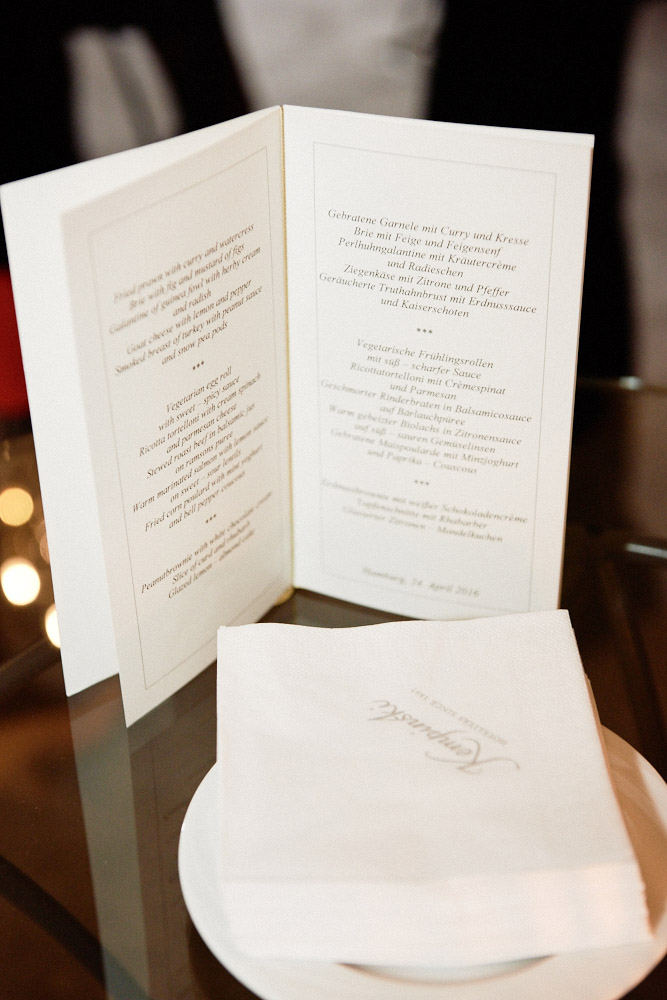 Fried prawn with curry and watercress
Brie with fig and mustard of figs
Galantine of guinea fowl with herby cream
and radish
Goat cheese with lemon and pepper
Smoked breast of turkey with peanut sauce
and snow pea pods
***
Vegetarian egg roll
with sweet – spicy sauce
Ricotta tortelloni with cream spinach
and parmesan cheese
Stewed roast beef in balsamic jus
on ramsons puree
Warm marinated salmon with lemon sauce
on sweet – sour lentils
Fried corn poulard with mint yoghurt
and bell pepper couscous
***
Peanutbrownie with white chocolate cream
Slice of curd and rhubarb
Glazed lemon – almond cake
Gebratene Garnele mit Curry und Kresse
Brie mit Feige und Feigensenf
Perlhuhngalantine mit Kräutercrème
und Radieschen
Ziegenkäse mit Zitrone und Pfeffer
Geräucherte Truthahnbrust mit Erdnusssauce
und Kaiserschoten
***
Vegetarische Frühlingsrollen
mit süß – scharfer Sauce
Ricottatortelloni mit Crèmespinat
und Parmesan
Geschmorter Rinderbraten in Balsamicosauce
auf Bärlauchpüree
Warm gebeizter Biolachs in Zitronensauce
auf süß – sauren Gemüselinsen
Gebratene Maispoularde mit Minzjoghurt
und Paprika – Couscous
***
Erdnussbrownie mit weißer Schokoladencrème
Topfenschnitte mit Rhabarber
Glasierter Zitronen – Mandelkuchen
Hamburg, April 2016
Kempinski
HOTELIERS SINCE 1897